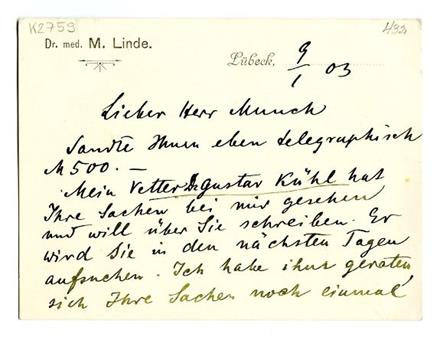 K2759
492
Dr. med. M. Linde.
Lübeck, 9/1 03
Lieber Herr Munch
Sandte Ihnen eben telegraphisch
M 500. —
Mein Vetter Dr Gustav Kühl hat
Ihre Sachen bei mir gesehen
und will über Sie schreiben. Er
wird Sie in den nächsten Tagen
aufsuchen. Ich habe ihm geraten,
sich Ihre Sachen noch einmal